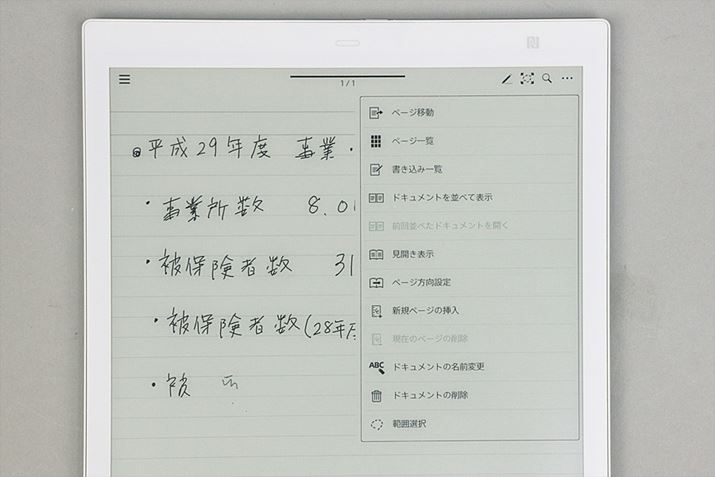 1/1
◎平成29年度 事業・
・事業所数 8.01
・被保険者数 31
・被保険者数(28年度
・被
ページ移動
ページ一覧
書き込み一覧
ドキュメントを並べて表示
前回並べたドキュメントを開く
見開き表示
ページ方向設定
新規ページの挿入
現在のページの削除
ABC ドキュメントの名前変更
ドキュメントの削除
範囲選択